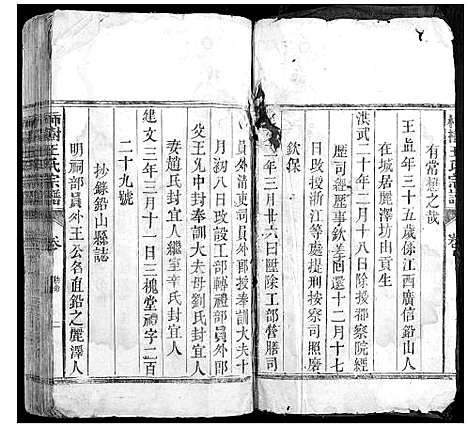 有常懋之哉
王皿年三十五歲係江西廣信鉛山人
在城居麗澤坊由貢生
洪武二十年二月十八日除授都察院經
歷司經歷事欽差回十二月十七
日改授浙江等處提刑按察司照磨
欽保
年三月廿六日陞除工部營膳司
員外清吏司員外郎授奉訓大夫十
月初八日改設工部轉禮部員外郎
父王允中封奉訓大夫母劉氏封宜人
妻趙氏封宜人繼室辛氏封宜人
建文三年三月十一日三槐堂禮字二百
二十九號
抄錄鉛山縣誌
明祠部員外王公名皿鉛之麗澤人
王氏宗譜
卷